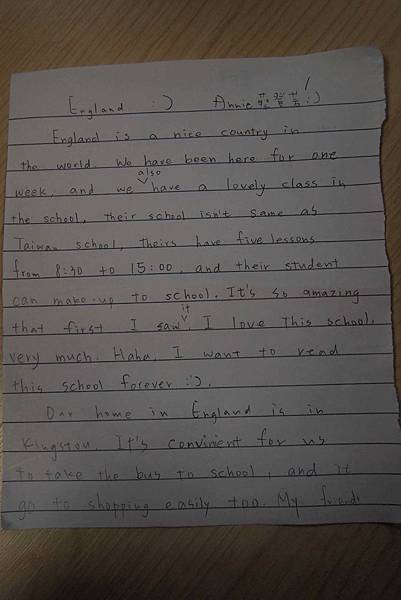 England :) Annie :)
England is a nice country in
the world. We have been here for one
week, and we also have a lovely class in
the school, their school isn't same as
Taiwan school, theirs have five lessons
from 8:30 to 15:00, and their student
can make-up to school. It's so amazing
that first I saw it I love This school.
very much. Haha, I want to read
this school forever :').
Our home in England is in
Kingston. It's convinient for us
to take the bus to school, and it
go to shopping easily too. My friends